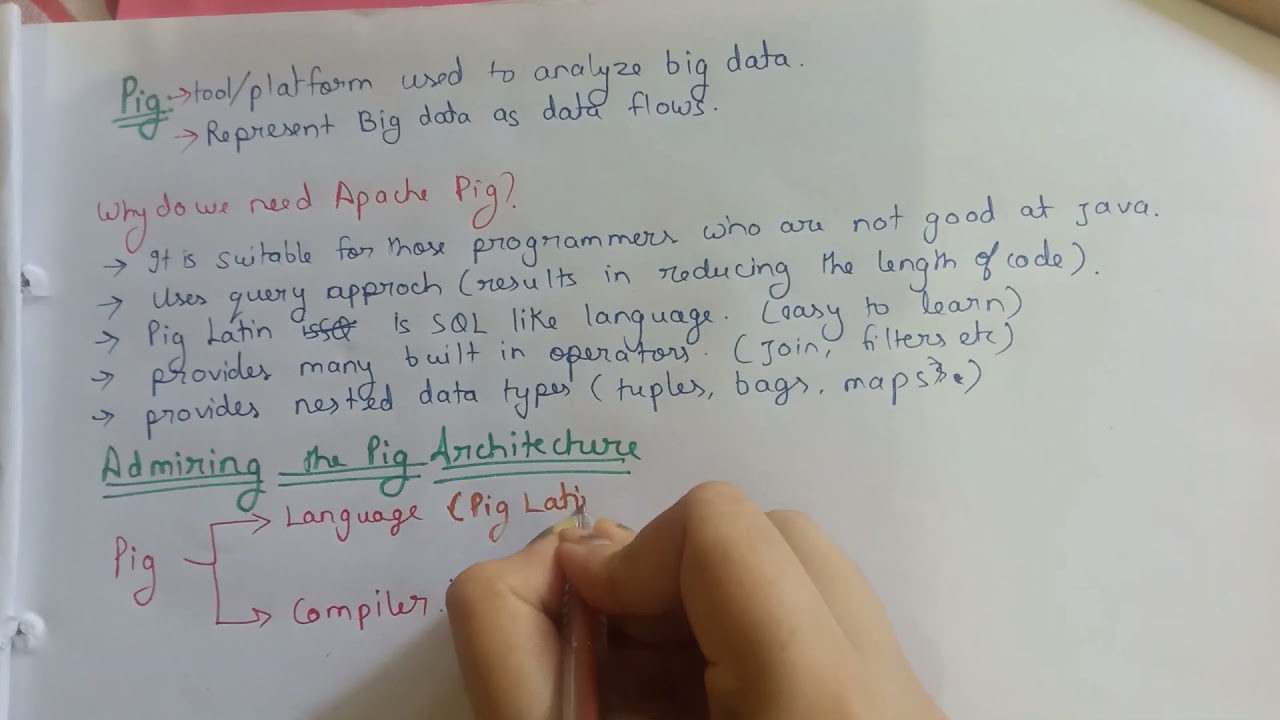 Pig:→tool/platform used to analyze big data.
→Represent Big data as data flows.
Why do we need Apache Pig?
→ It is suitable for those programmers who are not good at java.
→ Uses query approch (results in reducing the length of code).
→ Pig Latin is SQL like language. (easy to learn)
→ provides many built in operators. (Join, filters etc)
→ provides nested data types (tuples, bags, maps)
Admiring the Pig Architecture
Language (Pig Lati
Pig
Compiler.